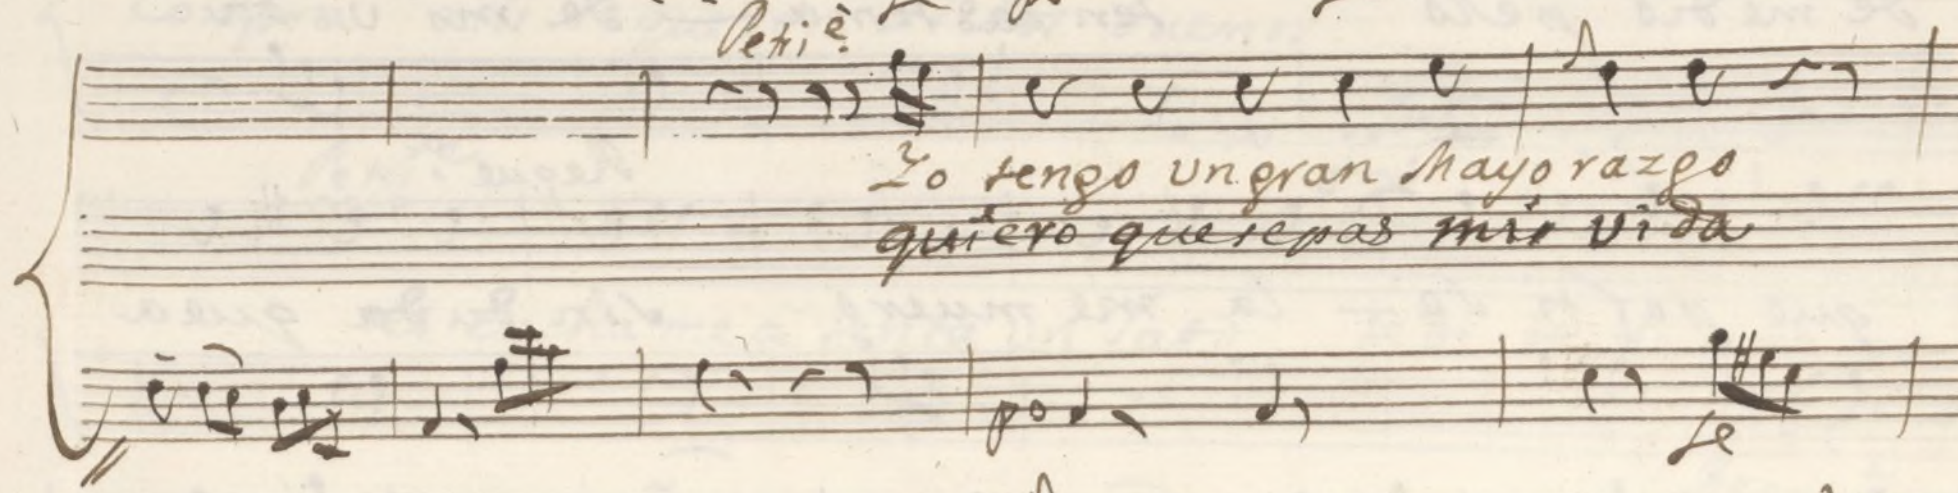 Petiè.
Yo tengo un gran Mayorazgo
quiero que sepas mi vida
po
fe